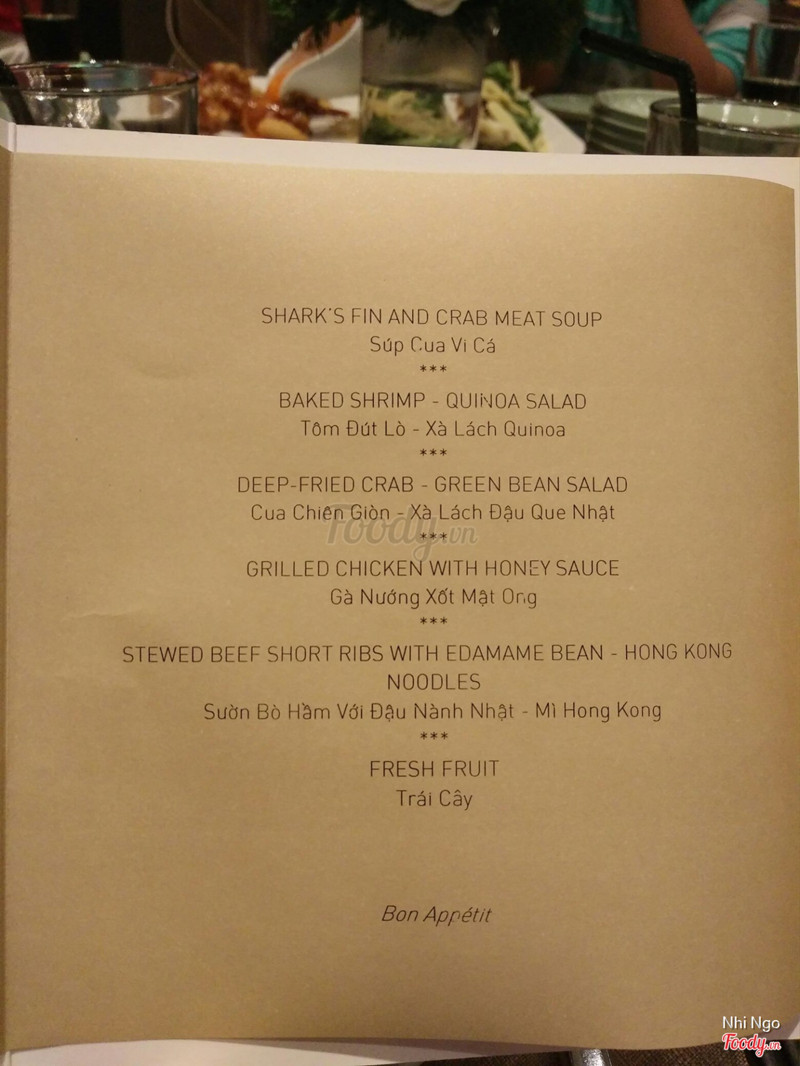 SHARK'S FIN AND CRAB MEAT SOUP
Súp Cua Vi Cá
***
BAKED SHRIMP - QUINOA SALAD
Tôm Đút Lò - Xà Lách Quinoa
***
DEEP-FRIED CRAB - GREEN BEAN SALAD
Cua Chiên Giòn - Xà Lách Đậu Que Nhật
Foody.vn
***
GRILLED CHICKEN WITH HONEY SAUCE
Gà Nướng Xốt Mật Ong
***
STEWED BEEF SHORT RIBS WITH EDAMAME BEAN - HONG KONG
NOODLES
Sườn Bò Hầm Với Đậu Nành Nhật - Mì Hong Kong
***
FRESH FRUIT
Trái Cây
Bon Appétit
Nhi Ngo
Foody.vn